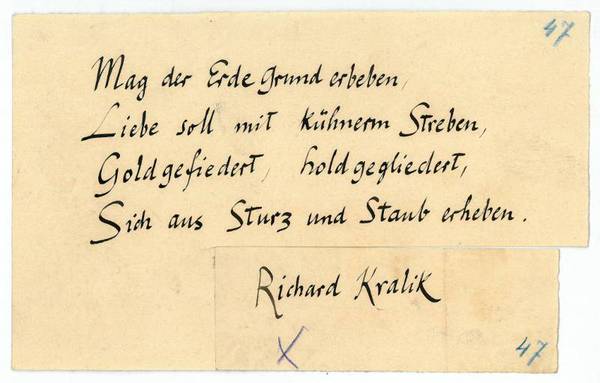 47
Mag der Erde Grund erbeben,
Liebe soll mit kühnerm Streben,
Goldgefiedert, holdgegliedert,
Sich aus Sturz und Staub erheben.
Richard Kralik
X
47